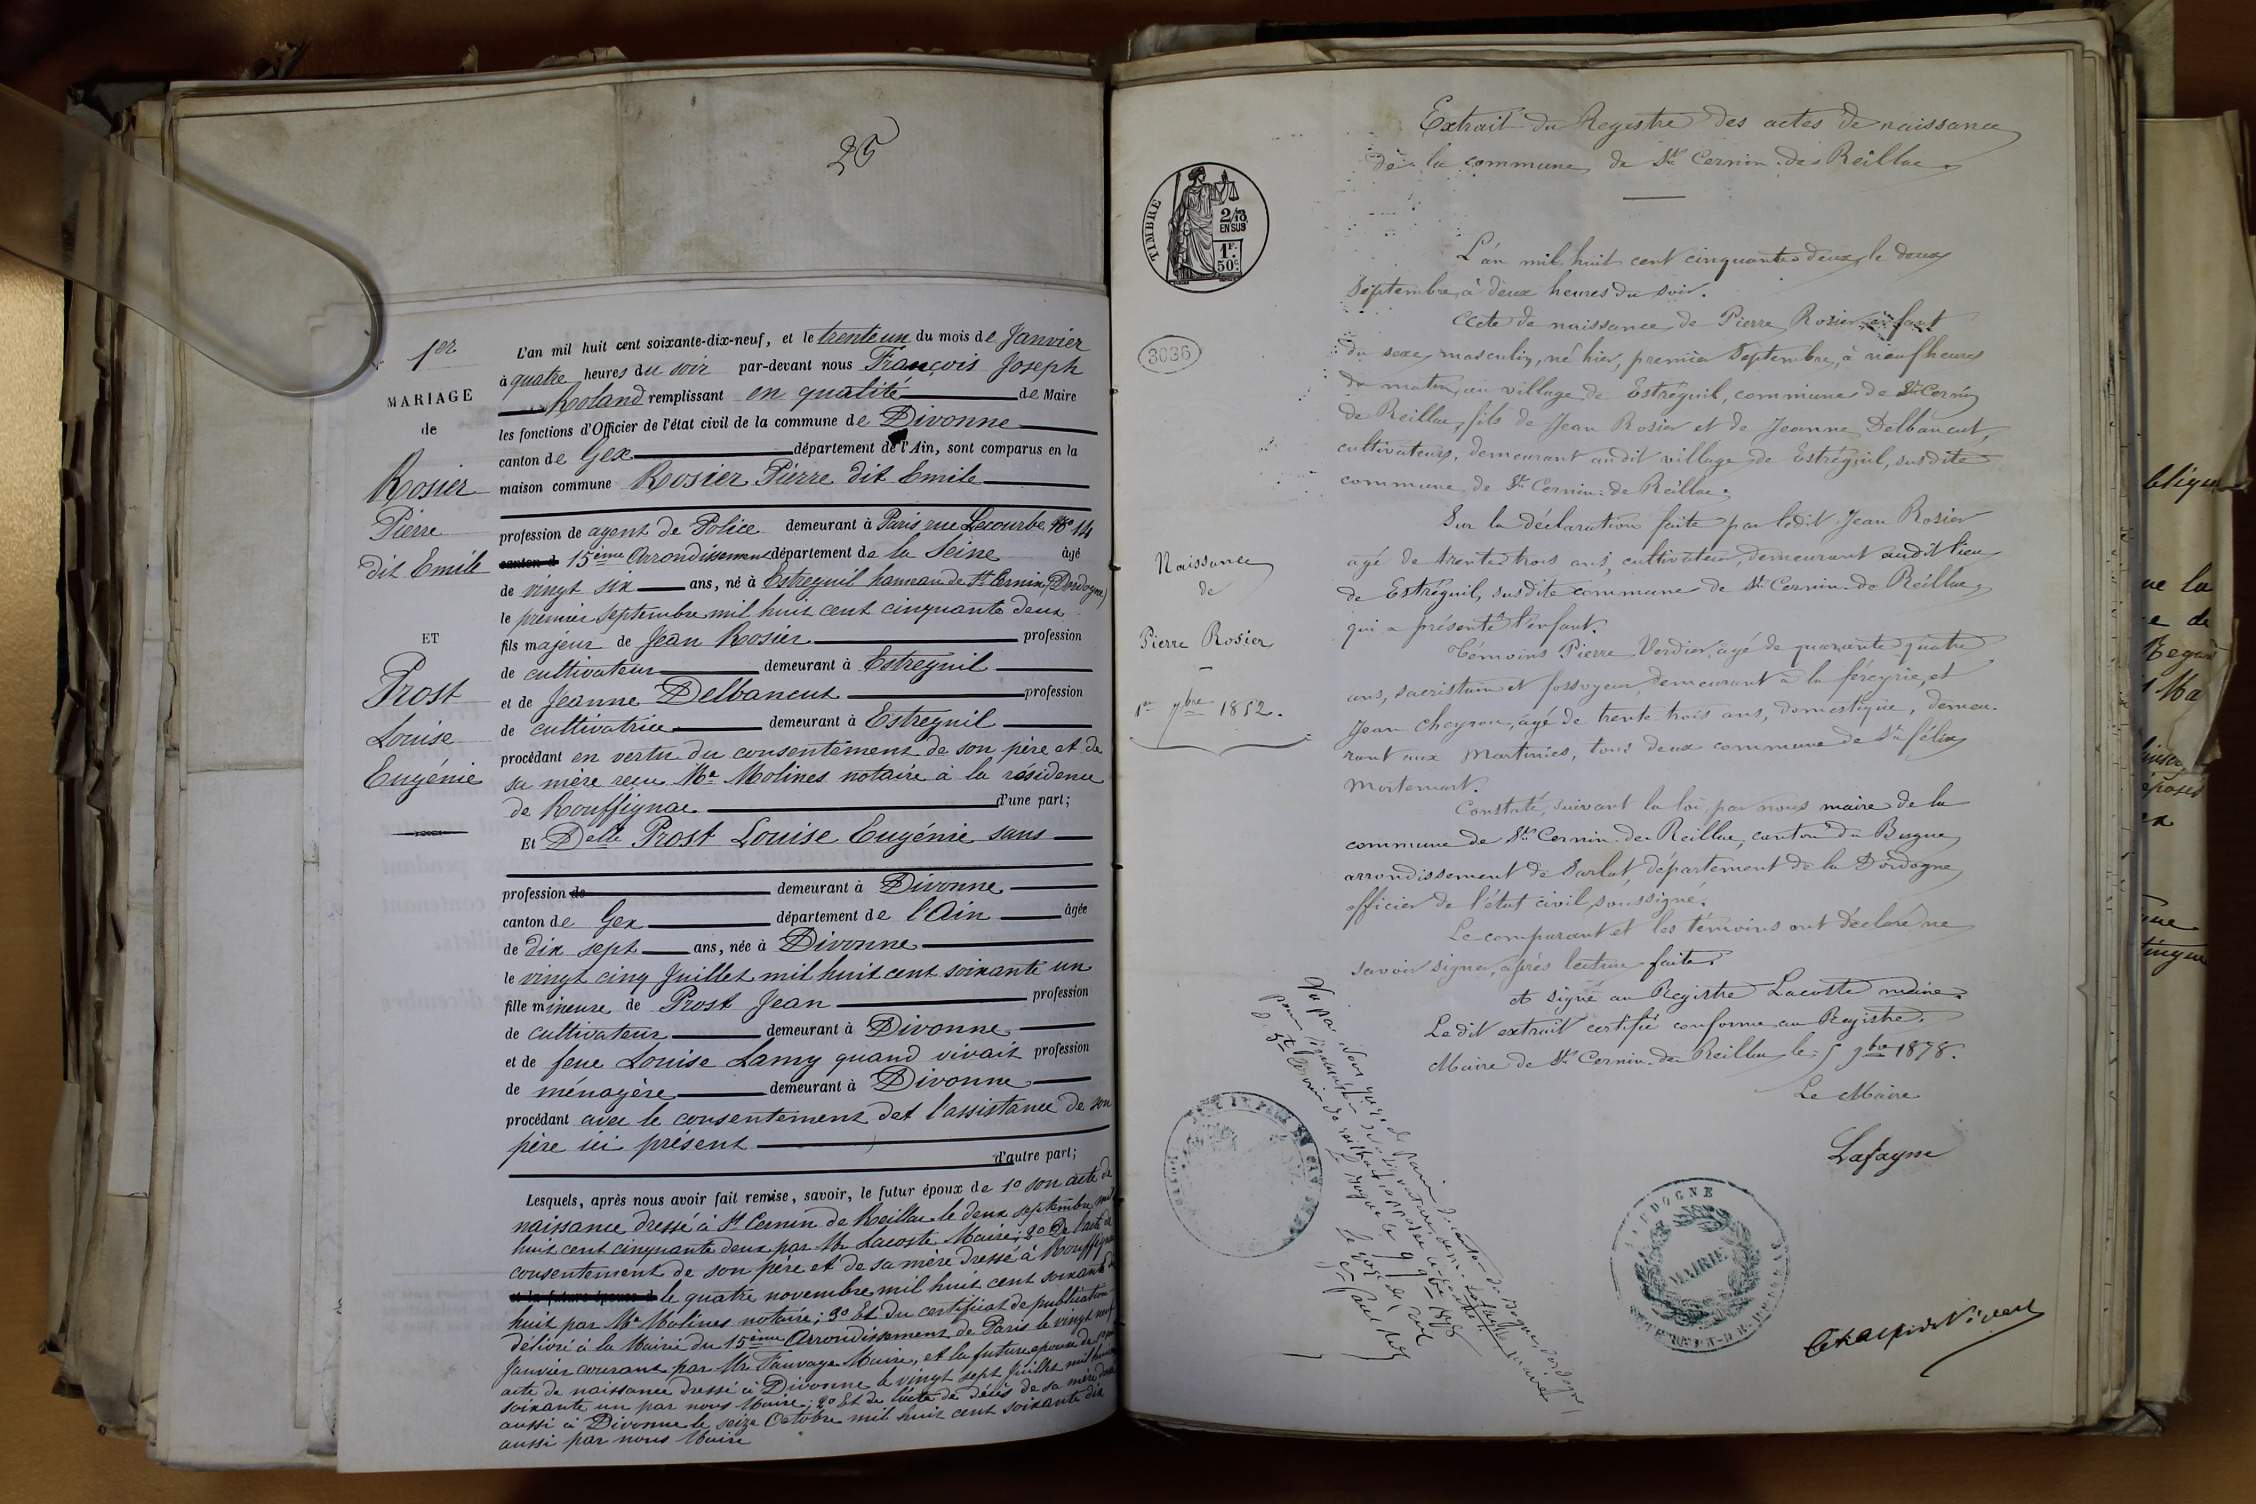 25
1er
MARIAGE
de
Rosier
Pierre
dit Emile
ET
Prost
Louise
Eugénie
L'an mil huit cent soixante-dix-neuf, et le trente un du mois de Janvier
à quatre heures du soir par-devant nous François Joseph
Roland remplissant en qualité de Maire
les fonctions d'Officier de l'état civil de la commune de Divonne
canton de Gex département de l'Ain, sont comparus en la
maison commune Rosier Pierre dit Emile
profession de agent de Police demeurant à Paris rue Lecourbe No 14
canton d 15ème Arrondissement département de la Seine âgé
de vingt six ans, né à Estreguil hameau de St Cernin (Dordogne)
le premier septembre mil huit cent cinquante deux
fils majeur de Jean Rosier profession
de cultivateur demeurant à Estreguil
et de Jeanne Delbancut profession
de cultivatrice demeurant à Estreguil
procédant en vertu du consentement de son père et de
sa mère reçu Me Molines notaire à la résidence
de Rouffignac d'une part;
Et Delle Prost Louise Eugénie sans
profession de demeurant à Divonne
canton de Gex département de l'Ain âgée
de dix sept ans, née à Divonne
le vingt cinq Juillet mil huit cent soixante un
fille mineure de Prost Jean profession
de cultivateur demeurant à Divonne
et de feue Louise Lamy quand vivait profession
de ménagère demeurant à Divonne
procédant avec le consentement det l'assistance de son
père ici présent
d'autre part;
Lesquels, après nous avoir fait remise, savoir, le futur époux de 1o son acte de
naissance dressé à St Cernin de Reillac le deux septembre mil
huit cent cinquante deux par Mr Lacoste Maire; 2o De l'acte de
consentement de son père et de sa mère dressé à Rouffignac
et la future épouse d le quatre novembre mil huit cent soixante dix
huit par Me Molines notaire; 3o Et du certificat de publication
délivré à la Mairie du 15ème Arrondissement de Paris le vingt neuf
Janvier courant par Mr Maire, et la future épouse de
acte de naissance dressé à Divonne le vingt sept Juillet mil huit
soixante un par nous Maire; 2o Et de l'acte de décès de sa mère dressé
aussi à Divonne le seize Octobre mil huit cent soixante dix
aussi par nous Maire
Extrait du Registre des actes de naissance
de la commune de St Cernin de Reillac
TIMBRE
2/10 EN SUS
1F. 50c
3036
Naissance
de
Pierre Rosier
1er 7bre 1852.
L'an mil huit cent cinquante deux, le deux
Septembre, à deux heures du soir.
Acte de naissance de Pierre Rosier enfant
du sexe masculin, né hier, premier Septembre, à neuf heures
du matin, au village de Estréguil, commune de St Cernin
de Reillac, fils de Jean Rosier et de Jeanne Delbancut,
cultivateurs, demeurant audit village de Estréguil, susdite
commune de St Cernin de Reillac.
Sur la déclaration faite par ledit Jean Rosier
agé de trente trois ans, cultivateur, demeurant audit lieu
de Estréguil, susdite commune de St Cernin de Reillac,
qui a présenté l'enfant.
Témoins Pierre Verdier, agé de quarante quatre
ans, sacristain et fossoyeur, demeurant à la féreyrie, et
Jean Cheyrou, agé de trente trois ans, domestique, demeu-
rant aux Martinies, tous deux commune de St félix
Mortemart.
Constaté, suivant la loi, par nous maire de la
commune de St Cernin de Reillac, canton du Bugue
arrondissement de Sarlat, département de la Dordogne
officier de l'état civil, soussigné.
Le comparant et les témoins ont déclaré ne
savoir signer, après lecture faite.
et signé au Registre Lacoste maire.
Le dit extrait certifié conforme au Registre.
Maire de St Cernin de Reillac le 5 9bre 1878.
Le Maire
Lafayne
DORDOGNE
MAIRIE